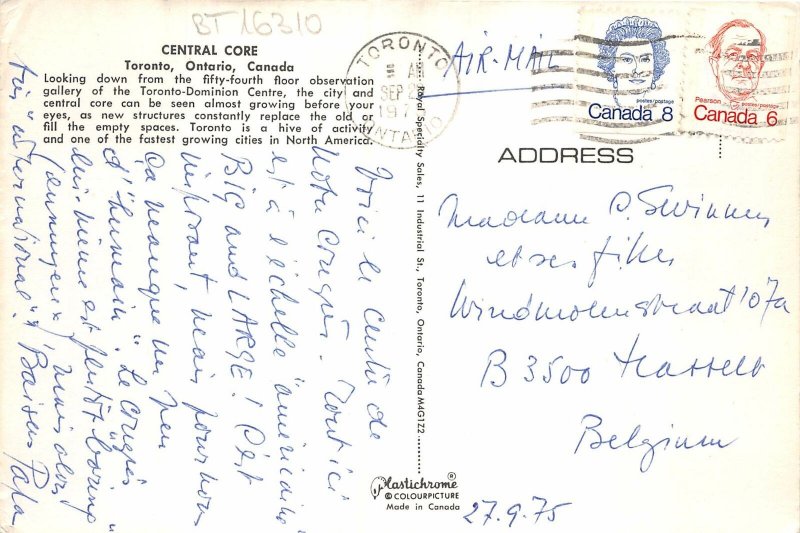 BT16310
CENTRAL CORE
Toronto, Ontario, Canada
Looking down from the fifty-fourth floor observation
gallery of the Toronto-Dominion Centre, the city and
central core can be seen almost growing before your
eyes, as new structures constantly replace the old or
fill the empty spaces. Toronto is a hive of activity
and one of the fastest growing cities in North America.
Voici le centre de
notre congrès. Tout ici
est à l'échelle "américaine"
BIG and LARGE! C'est
imposant, mais pour nous
Ça manque un peu
d'"humain". Le congrès
lui-même est plutôt "boring"
(ennuyeux) mais alors
très "international".
Baisers Papa
Royal Specialty Sales, 11 Industrial St., Toronto, Ontario, Canada M4G1Z2
Plastichrome ®
© COLOURPICTURE
Made in Canada
TORONTO
SEP 2
197
ONTARIO
AIR-MAIL
postes/postage
Canada 8
Pearson postes/postage
Canada 6
ADDRESS
Madame P. Swinnen
et ses filles
Windmolenstraat 107a
B 3500 Hasselt
Belgium
27.9.75